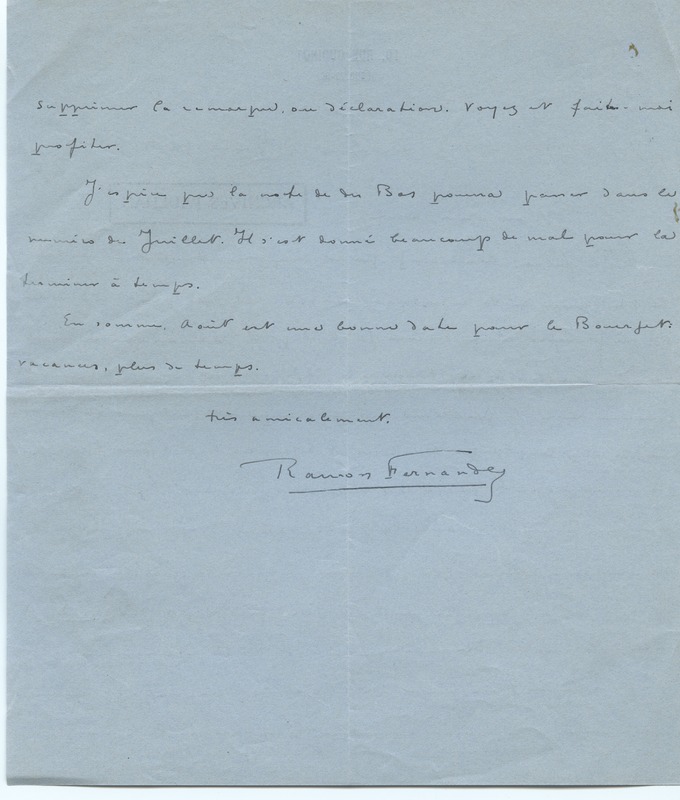 supprimer la remarque, ou déclaration. Voyez et faites-moi
profiter.
J'espère que la note de du Bos pourra passer dans le
numéro de Juillet. Il s'est donné beaucoup de mal pour la
terminer à temps.
En somme, Août est une bonne date pour le Bourget:
vacances, plus de temps.
très amicalement.
Ramon Fernandez